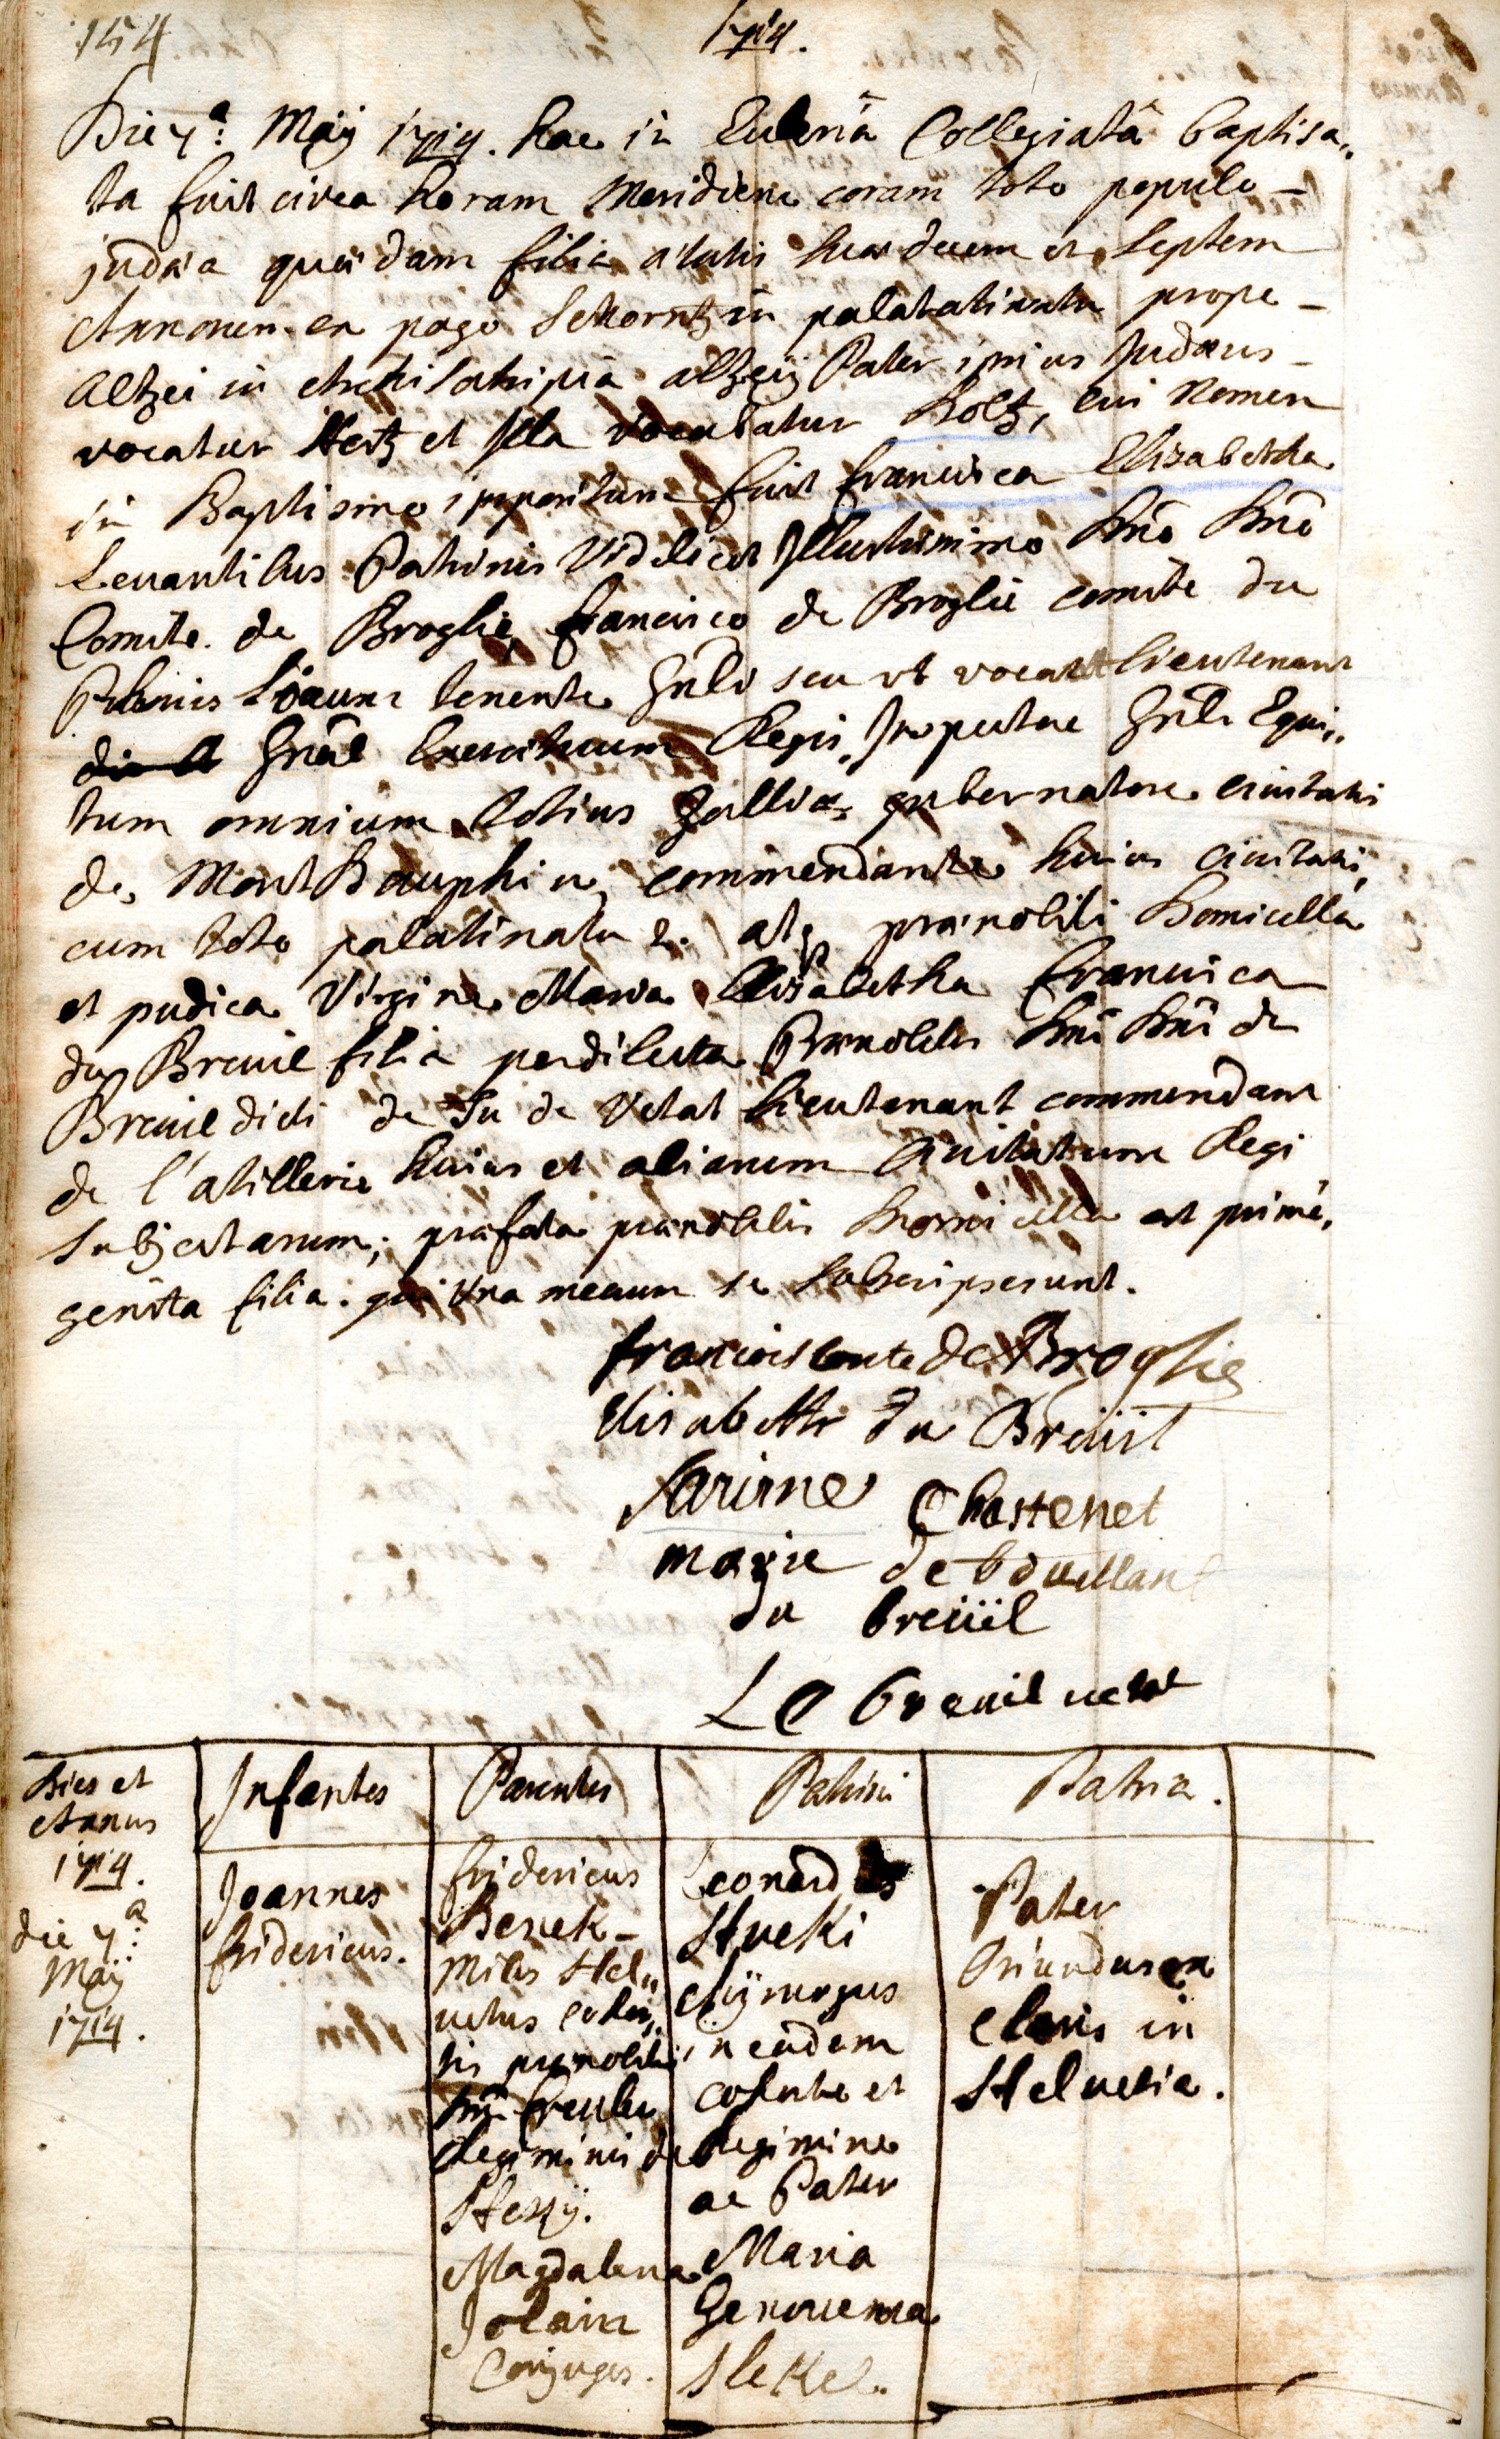 154
1714.
Die 7a: Maij 1714. hac in Collegiatâ baptisa„
ta fuit circa horam Meridiem coram toto populo –
judæa quædam filia ætatis suæ decem et septem
Annorum ex pago Schorntz in palatinatu prope –
altzei in altzeij Pater ipsius Judæus –
vocatur Hertz et Jlla vocabatur Holtz, cui Nomen
in Baptismo impositum fuit francisca Elisabetha
Levantibus Patrinis Videlicet Jllustrissimo Dnō Dnō
Comite de Broglie, francisco de Broglie comite du
locum tenente Gnli seu ut vocat lieutenant
Gnêal Exercituum Regis, Inspectore Gnli Equi„
tum omnium totius Galliæ, gubernatore civitatis
de Mont Dauphin, commendante huius civitatis,
cum toto palatinatu &. atq prænobili Domicella
et pudica Virgine Maria Elisabetha Francisca
du Breuil filia perdilecta Prænobilis Dni Dni du
Breuil dicti de Lu de Vetat lieutenant commendant
de l'atillerie huius et aliarum Civitatum Regi
Subjectarum; præfata prænobilis Domicella est primo„
genita filia. qui Una mecum se Subscripserunt.
francois conte de Broglie
Elisabette du Breüil
Chastenet
marie de bouillant
du breüil
Le breuil
Dies et
Annus
1714.
Infantes
Parentes
Patrini
Patria.
die 7a:
Maij
1714.
Joannes
fridericus.
fridericus
Benek –
Miles Hel„
vetus cohor„
tis prænobilis
Dni freuler
Regiminis de
Hessij.
Magdalena
Jolain
Conjuges.
Leonardus
Stucki
Chyrurgus
in eadem
cohorte et
Regimine
ac Pater
Maria
Genouewa
Sleke.
Pater
Oriundus ex
Claris in
Helvetia.